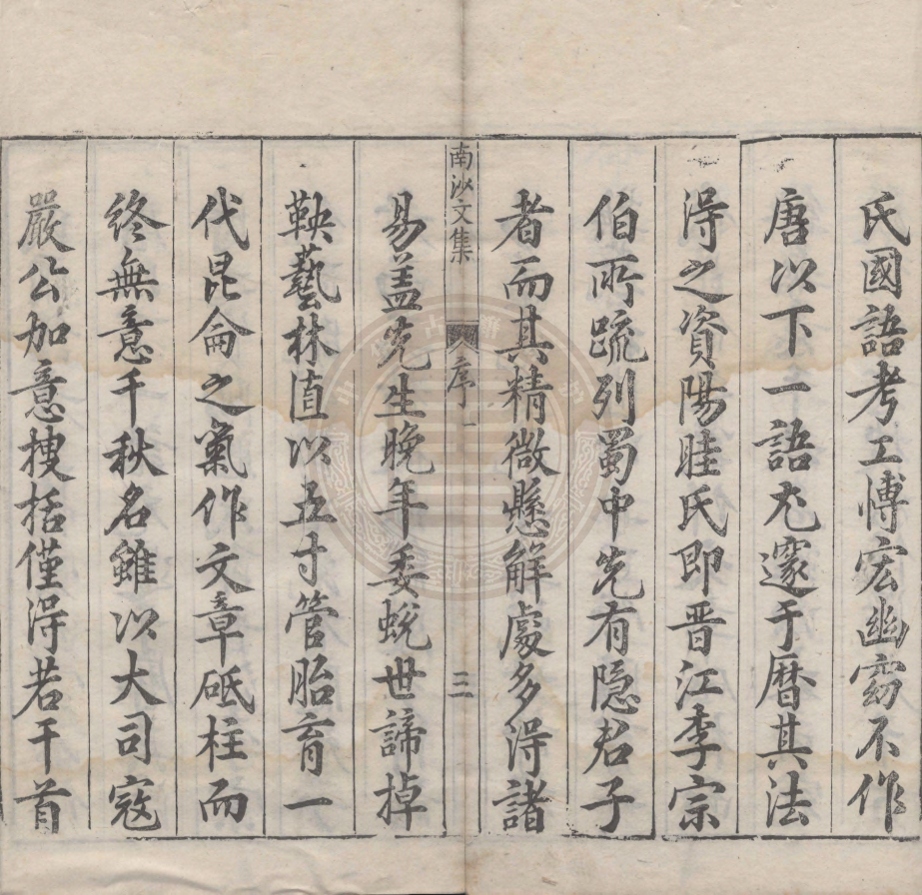 氏國語考工博宏幽窈不作
唐以下一語尤邃于曆其法
淂之資陽眭氏即晋江李宗
伯所疏列蜀中先有隐君子
者而其精微懸解處多淂諸
南沙文集 序 三
易盖先生晚年委蛻世諦掉
鞅藝林直以五寸管胎育一
代昆侖之氣作文章砥柱而
終無意千秋名雖以大司寇
嚴公加意搜括僅淂若干首